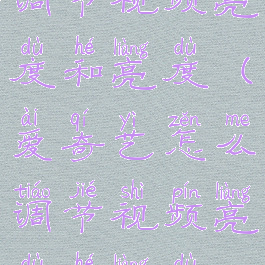 调节视频亮
dù hé liàng dù
度和亮度（
ài qí yì zěn me
爱奇艺怎么
tiáo jié shì pín liàng
调节视频亮
dù hé liàng dù